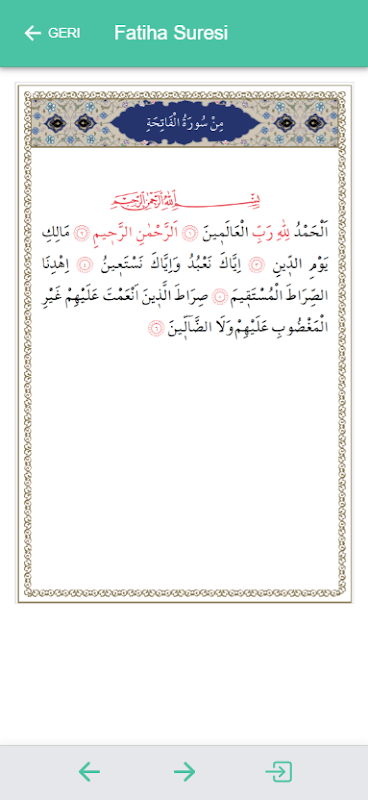 GERİ Fatiha Suresi
مِنْ سُورَةُ الْفَاتِحَةِ
بِسْمِ اللّٰهِ الرَّحْمٰنِ الرَّحِيمِ
اَلْحَمْدُ لِلّٰهِ رَبِّ الْعَالَمِينَ ﴿١﴾ اَلرَّحْمٰنِ الرَّحِيمِ ﴿٢﴾ مَالِكِ
يَوْمِ الدِّينِ ﴿٣﴾ اِيَّاكَ نَعْبُدُ وَاِيَّاكَ نَسْتَعِينُ ﴿٤﴾ اِهْدِنَا
الصِّرَاطَ الْمُسْتَقِيمَ ﴿٥﴾ صِرَاطَ الَّذِينَ اَنْعَمْتَ عَلَيْهِمْ غَيْرِ
الْمَغْضُوبِ عَلَيْهِمْ وَلَا الضَّٓالِّينَ ﴿٦﴾